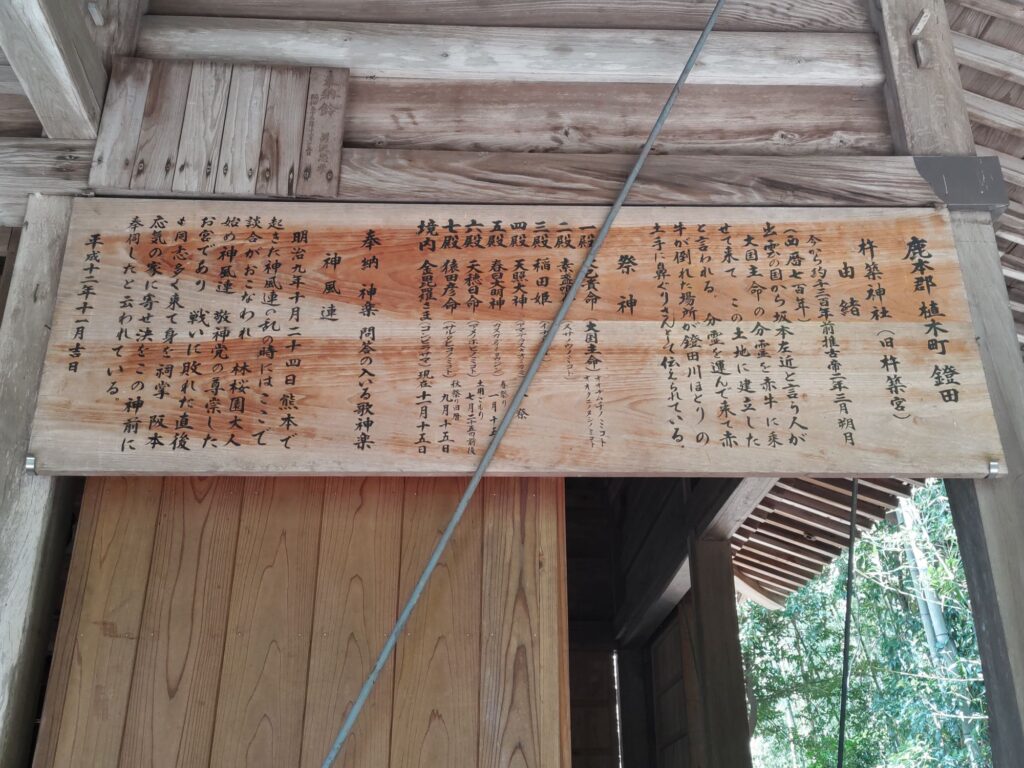 鹿本郡 植木町 鐙田
杵築神社（旧杵築宮）
由緒
今から約千三百年前推古帝二年三月朔月
（西暦七百年）
出雲の国から坂本左近と言う人が
大国主命の分霊を赤牛に乗
せて来て この土地に建立した
と言われる。分霊を運んで来て赤
牛が倒れた場所が鐙田川ほとりの
土手に鼻ぐりさんとて伝えられている。
祭神
一殿 貴命（大国主命）
二殿
三殿 稲田姫
四殿 天照大神 祭
五殿 春日大明神 春祭り 一月十五
六殿 天穂日命 七月二十五日前後
七殿 猿田彦命 秋祭り旧暦 九月十五日
境内 金毘羅さま（コンピラサマ）現在十一月十五日
奉納 神楽 問答の入いる歌神楽
神風連
明治九年十月二十四日熊本で
起きた神風連の乱の時にはここで
談合がおこなわれ 林桜園大人
始め神風連 敬神党の尊崇した
お宮であり 戦いに敗れた直後
も同志多く来て身を祠掌 阪本
応気の家に寄せ決をこの神前に
奉伺したと云われている。
平成十二年十一月吉日
納鈴